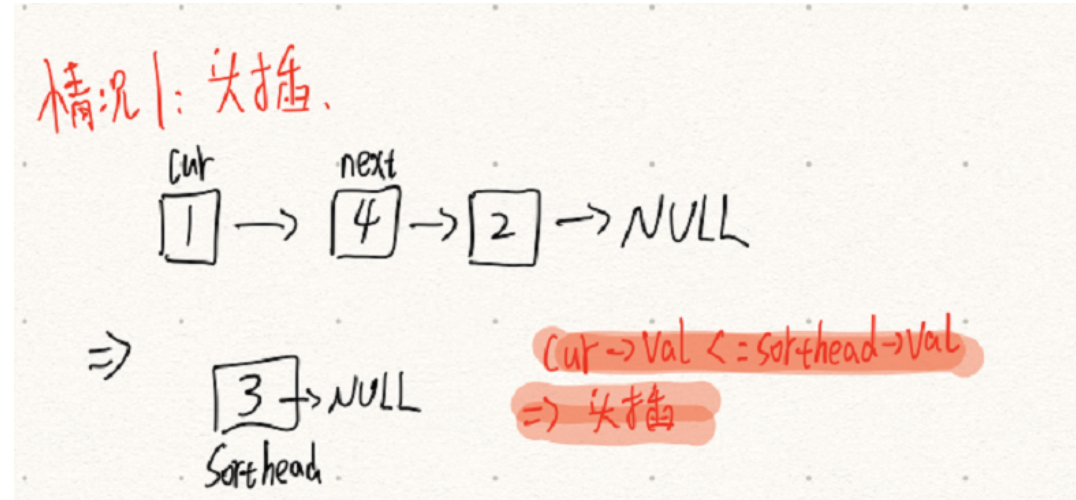 情况1:头插、
cur next
1 → 4 → 2 → NULL
⇒
cur->val <= sorthead->val
3 → NULL
=> 头插
Sorthead